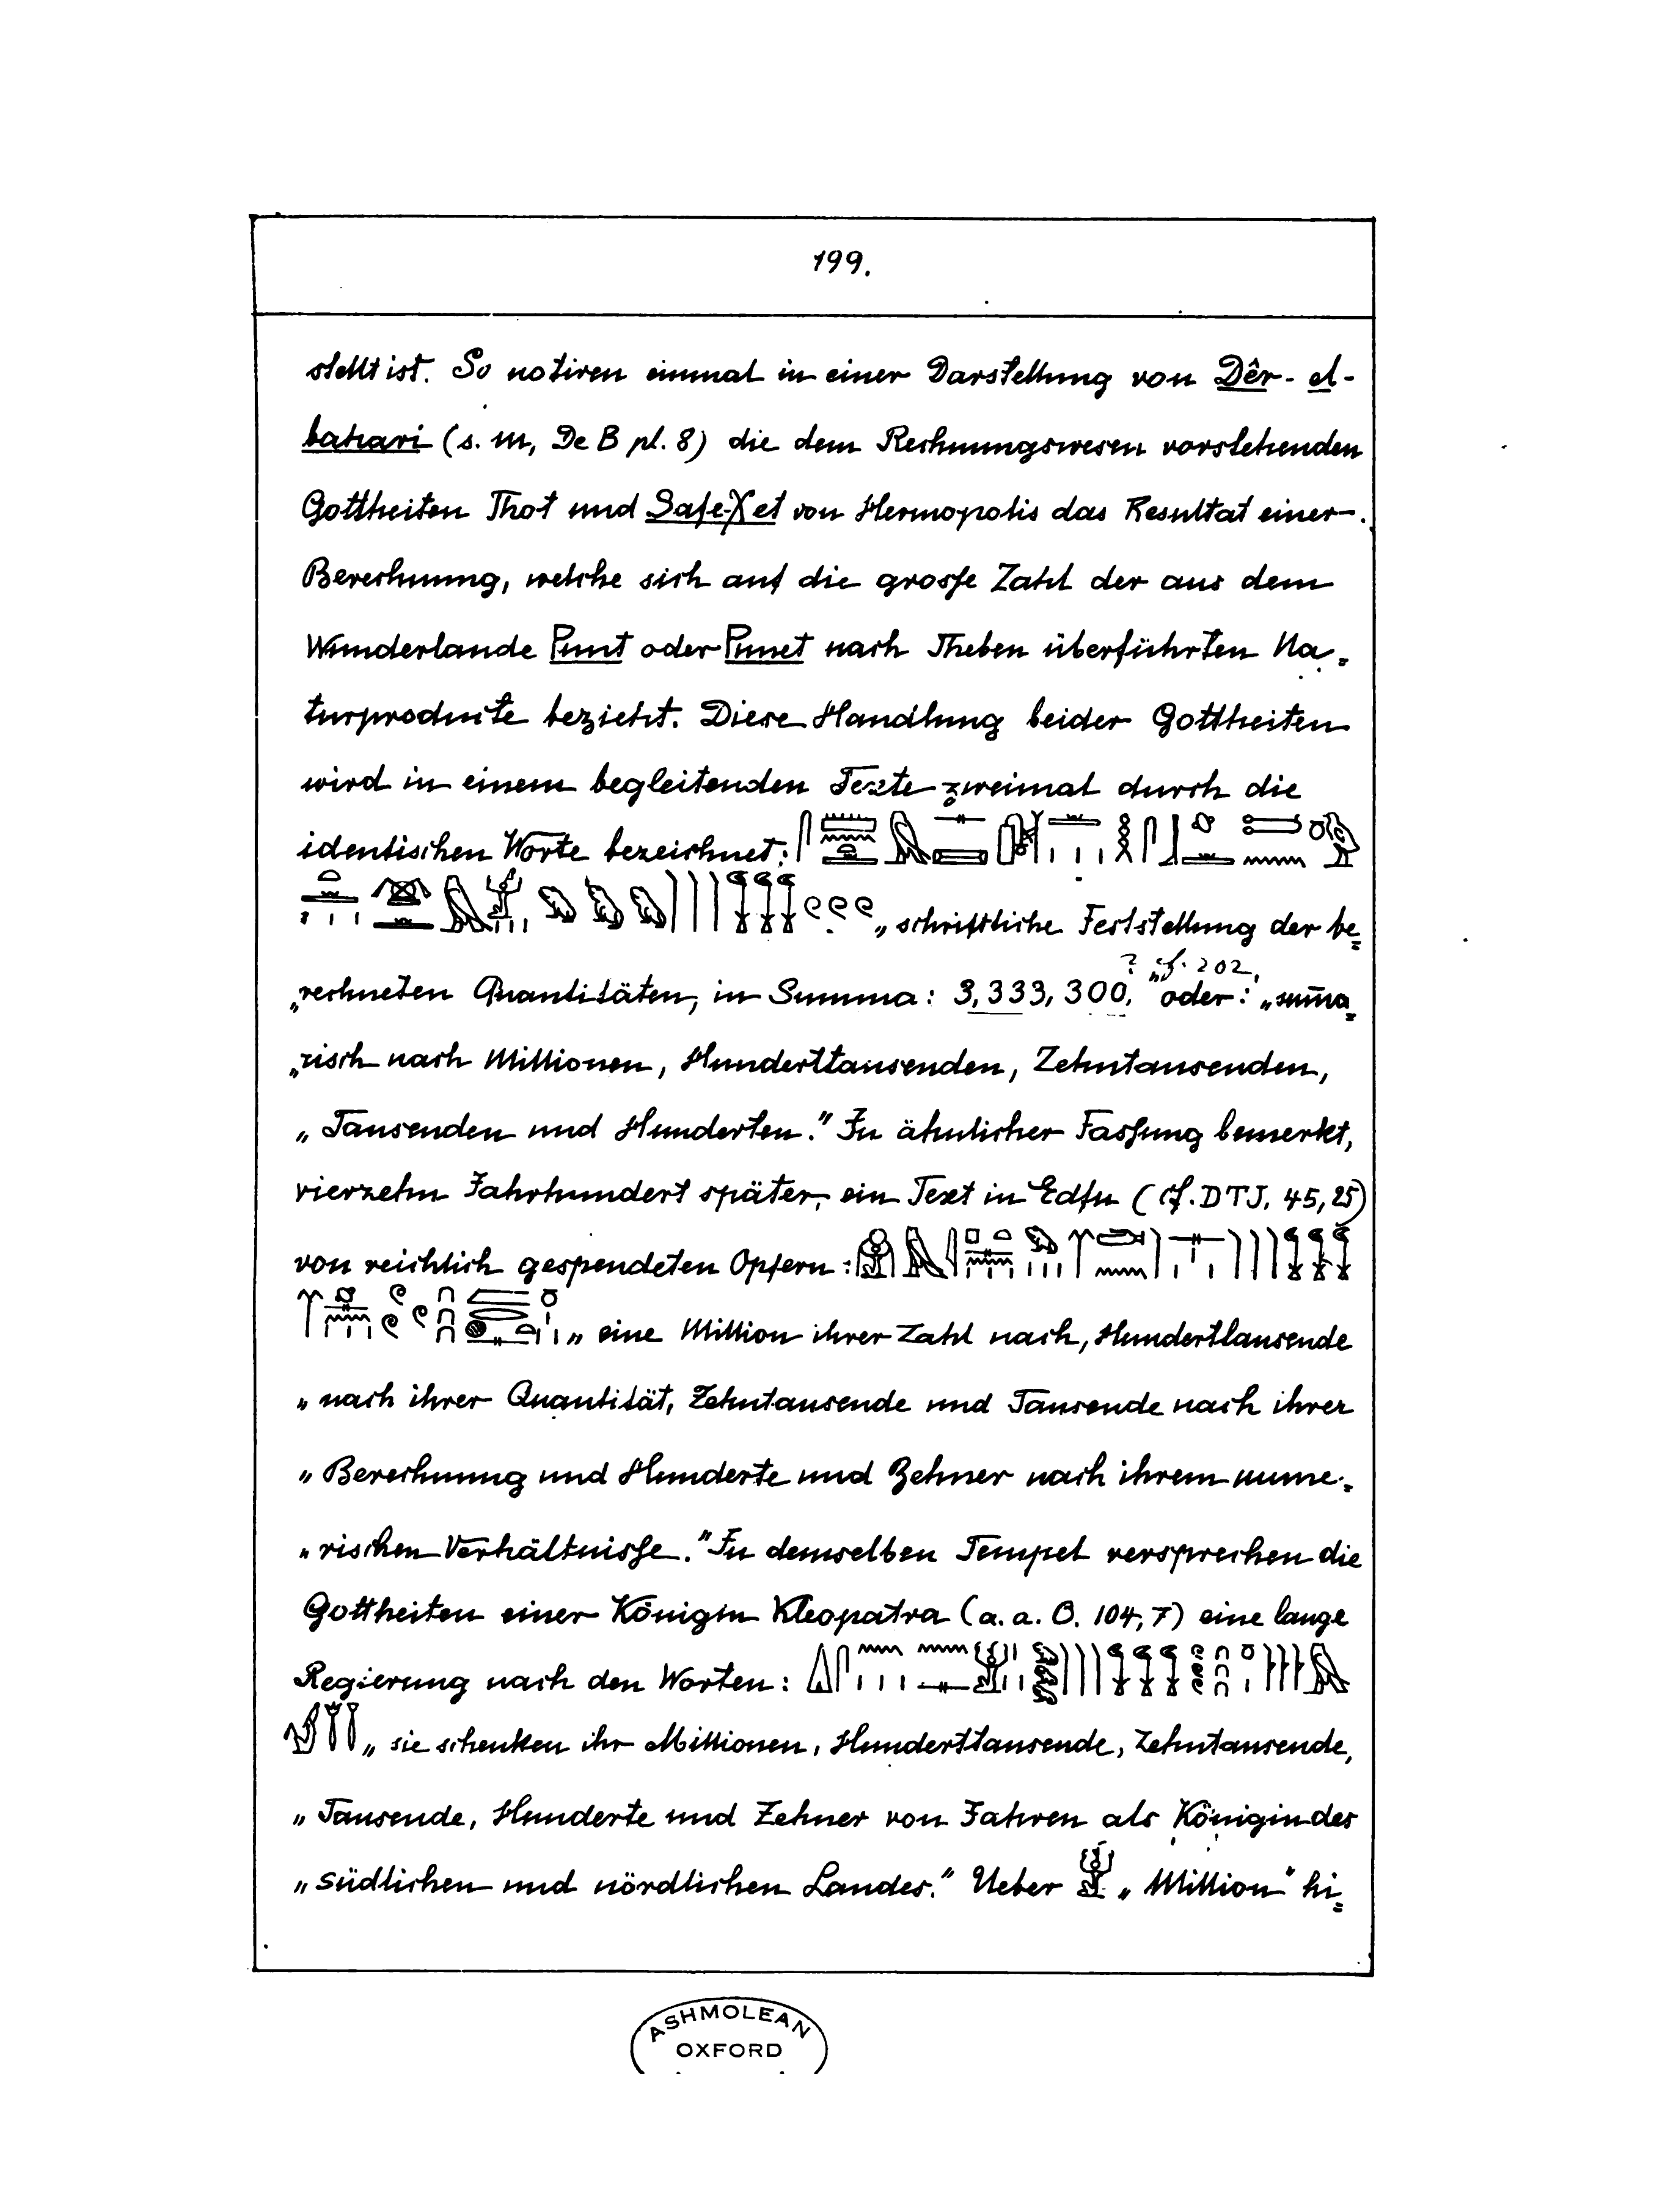 199.
stellt ist. So notiren einmal in einer Darstellung von Dêr-el-
bahari (s. m, De B pl. 8) die dem Rechnungswesen vorstehenden
Gottheiten Thot und Safe-χet von Hermopolis das Resultat einer
Berechnung, welche sich auf die grosse Zahl der aus dem
Wunderlande Punt oder Punet nach Theben überführten Na=
turprodukte bezieht. Diese Handlung beider Gottheiten
wird in einem begleitenden Texte zweimal durch die
identischen Worte bezeichnet:
„schriftliche Feststellung der be=
? cf. 202,
„rechneten Quantitäten, in Summa: 3,333,300," oder: „sum̄a=
„risch nach Millionen, Hunderttausenden, Zehntausenden,
„Tausenden und Hunderten." In ähnlicher Fassung bemerkt,
vierzehn Jahrhundert später, ein Text in Edfu (cf. DTJ, 45,25)
von reichlich gespendeten Opfern:
„eine Million ihrer Zahl nach, Hunderttausende
„nach ihrer Quantität, Zehntausende und Tausende nach ihrer
„Berechnung und Hunderte und Zehner nach ihrem nume=
„rischen Verhältnisse." In demselben Tempel versprechen die
Gottheiten einer Königin Kleopatra (a. a. O. 104,7) eine lange
Regierung nach den Worten:
„sie schenken ihr Millionen, Hunderttausende, Zehntausende,
„Tausende, Hunderte und Zehner von Jahren als Königin des
„südlichen und nördlichen Landes." Ueber 𓁨 „Million" hi=
ASHMOLEAN
OXFORD